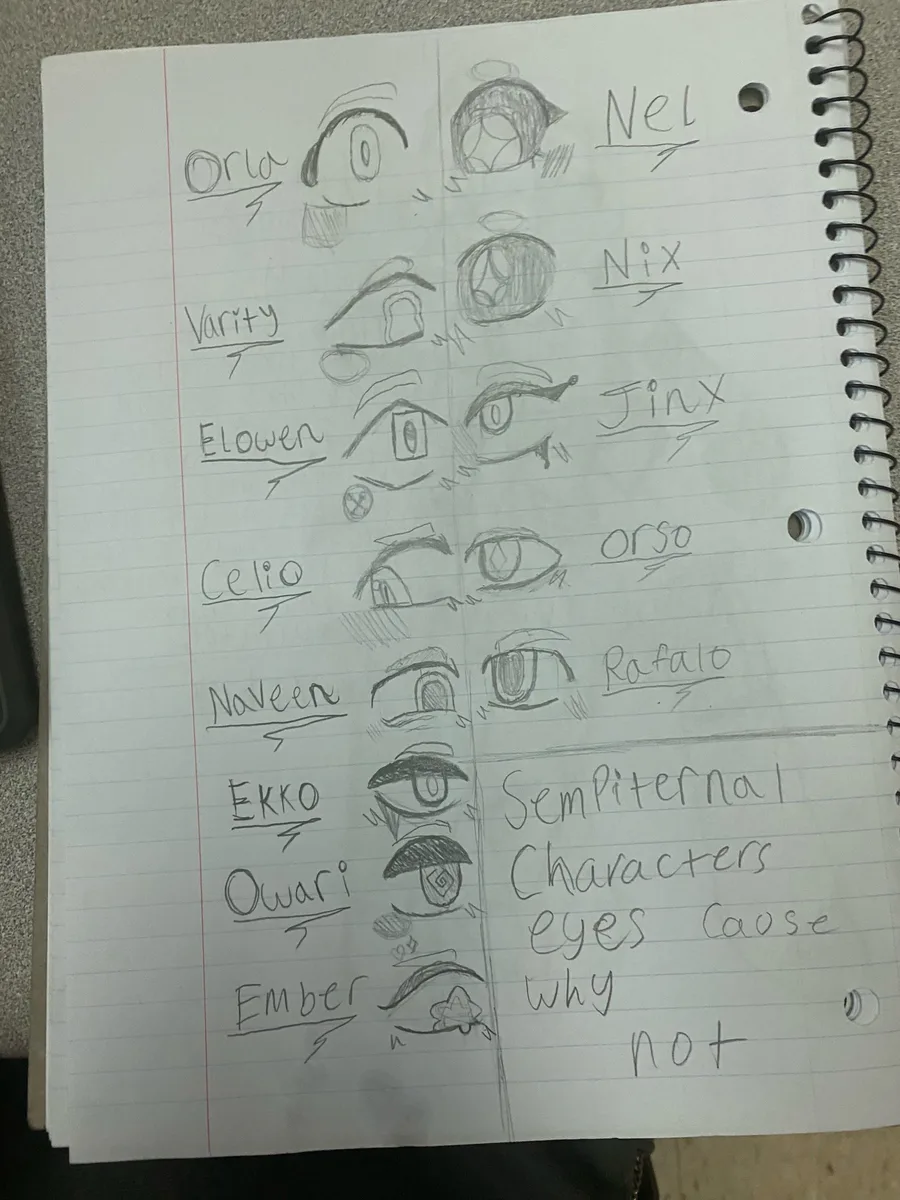 Orla
Varity
Elowen
Celio
Naveen
Ekko
Owari
Ember
Nel
Nix
Jinx
Orso
Rafalo
Sempiternal
Characters
eyes Cause
Why
not